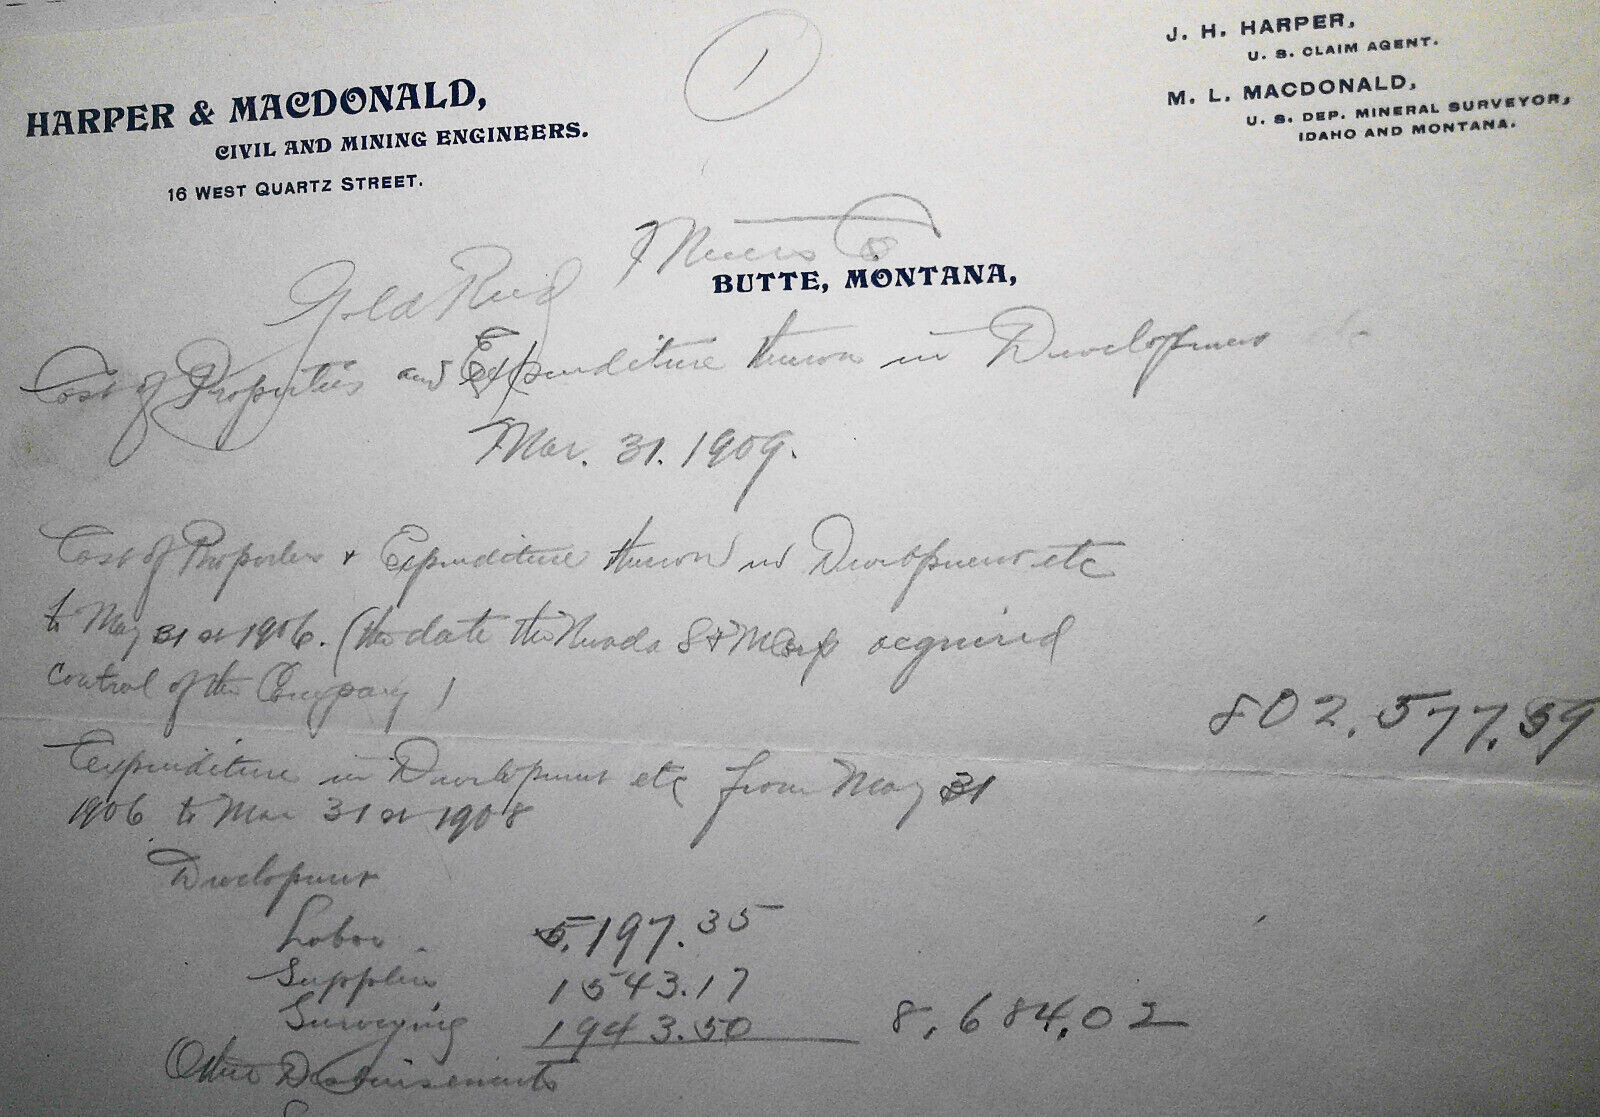 1
J. H. HARPER,
U. S. CLAIM AGENT.
M. L. MACDONALD,
U. S. DEP. MINERAL SURVEYOR,
IDAHO AND MONTANA.
HARPER & MACDONALD,
CIVIL AND MINING ENGINEERS.
16 WEST QUARTZ STREET.
BUTTE, MONTANA,
Gold Reed Mines Co
Cost of Properties and Expenditure thereon in Development etc
Mar. 31. 1909.
Cost of Properties & Expenditure thereon in Development etc
to May 31st 1906. (the date the Nevada S & M Corp acquired
control of the Company)
802,577.59
Expenditure in Development etc from May 31
1906 to Mar 31st 1908
Development
Labor 5,197.35
Supplies 1543.17
Surveying 1943.50 8,684.02
Other Disbursements